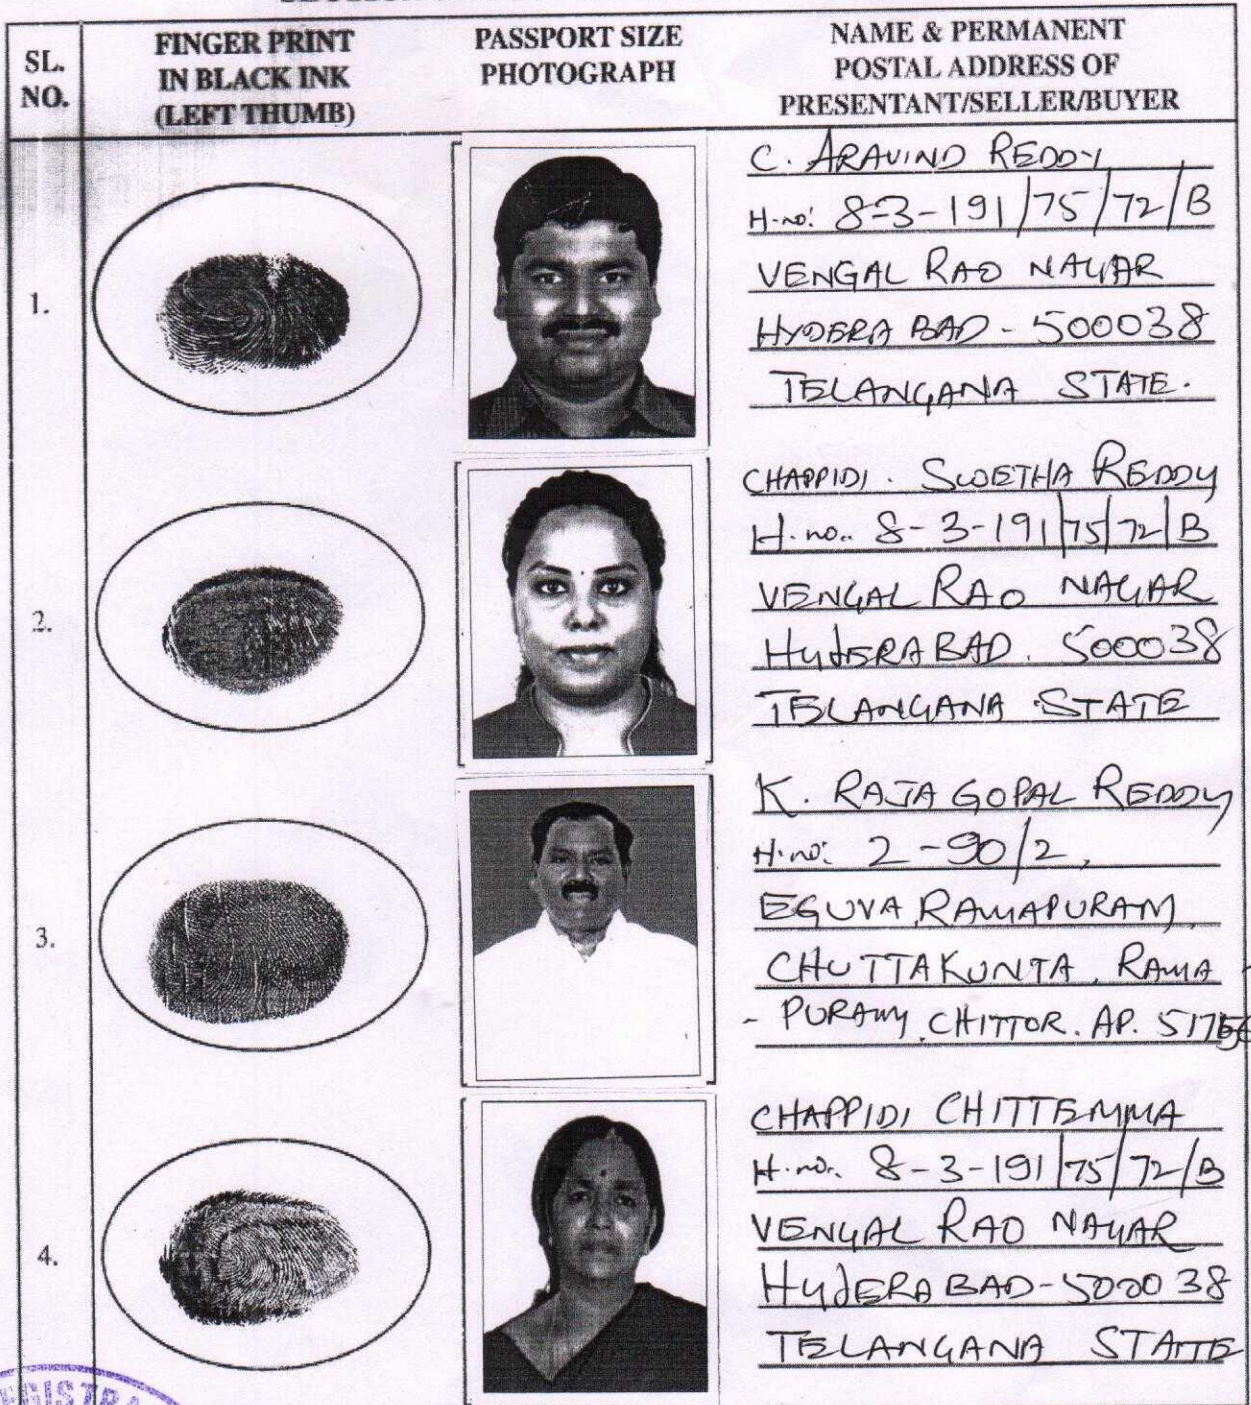 SL.
NO.
FINGER PRINT
IN BLACK INK
(LEFT THUMB)
PASSPORT SIZE
PHOTOGRAPH
NAME & PERMANENT
POSTAL ADDRESS OF
PRESENTANT/SELLER/BUYER
1.
C. ARAVIND REDDY
H-no: 8-3-191/75/72/B
VENGAL RAO NAGAR
HYDERA BAD - 500038
TELANGANA STATE.
2.
CHAPPIDI. SWETHA REDDY
H.no.. 8-3-191/75/72/B
VENGAL RAO NAGAR
HyDERA BAD. 500038
TELANGANA STATE
3.
K. RAJA GOPAL REDDY
H.no: 2-90/2,
EGUVA RAMAPURAM,
CHUTTAKUNTA, RAMA -
- PURAM, CHITTOR. AP.
4.
CHAPPIDI CHITTEMMA
H.no. 8-3-191/75/72/B
VENGAL RAO NAGAR
HyDERA BAD-500038
TELANGANA STATE